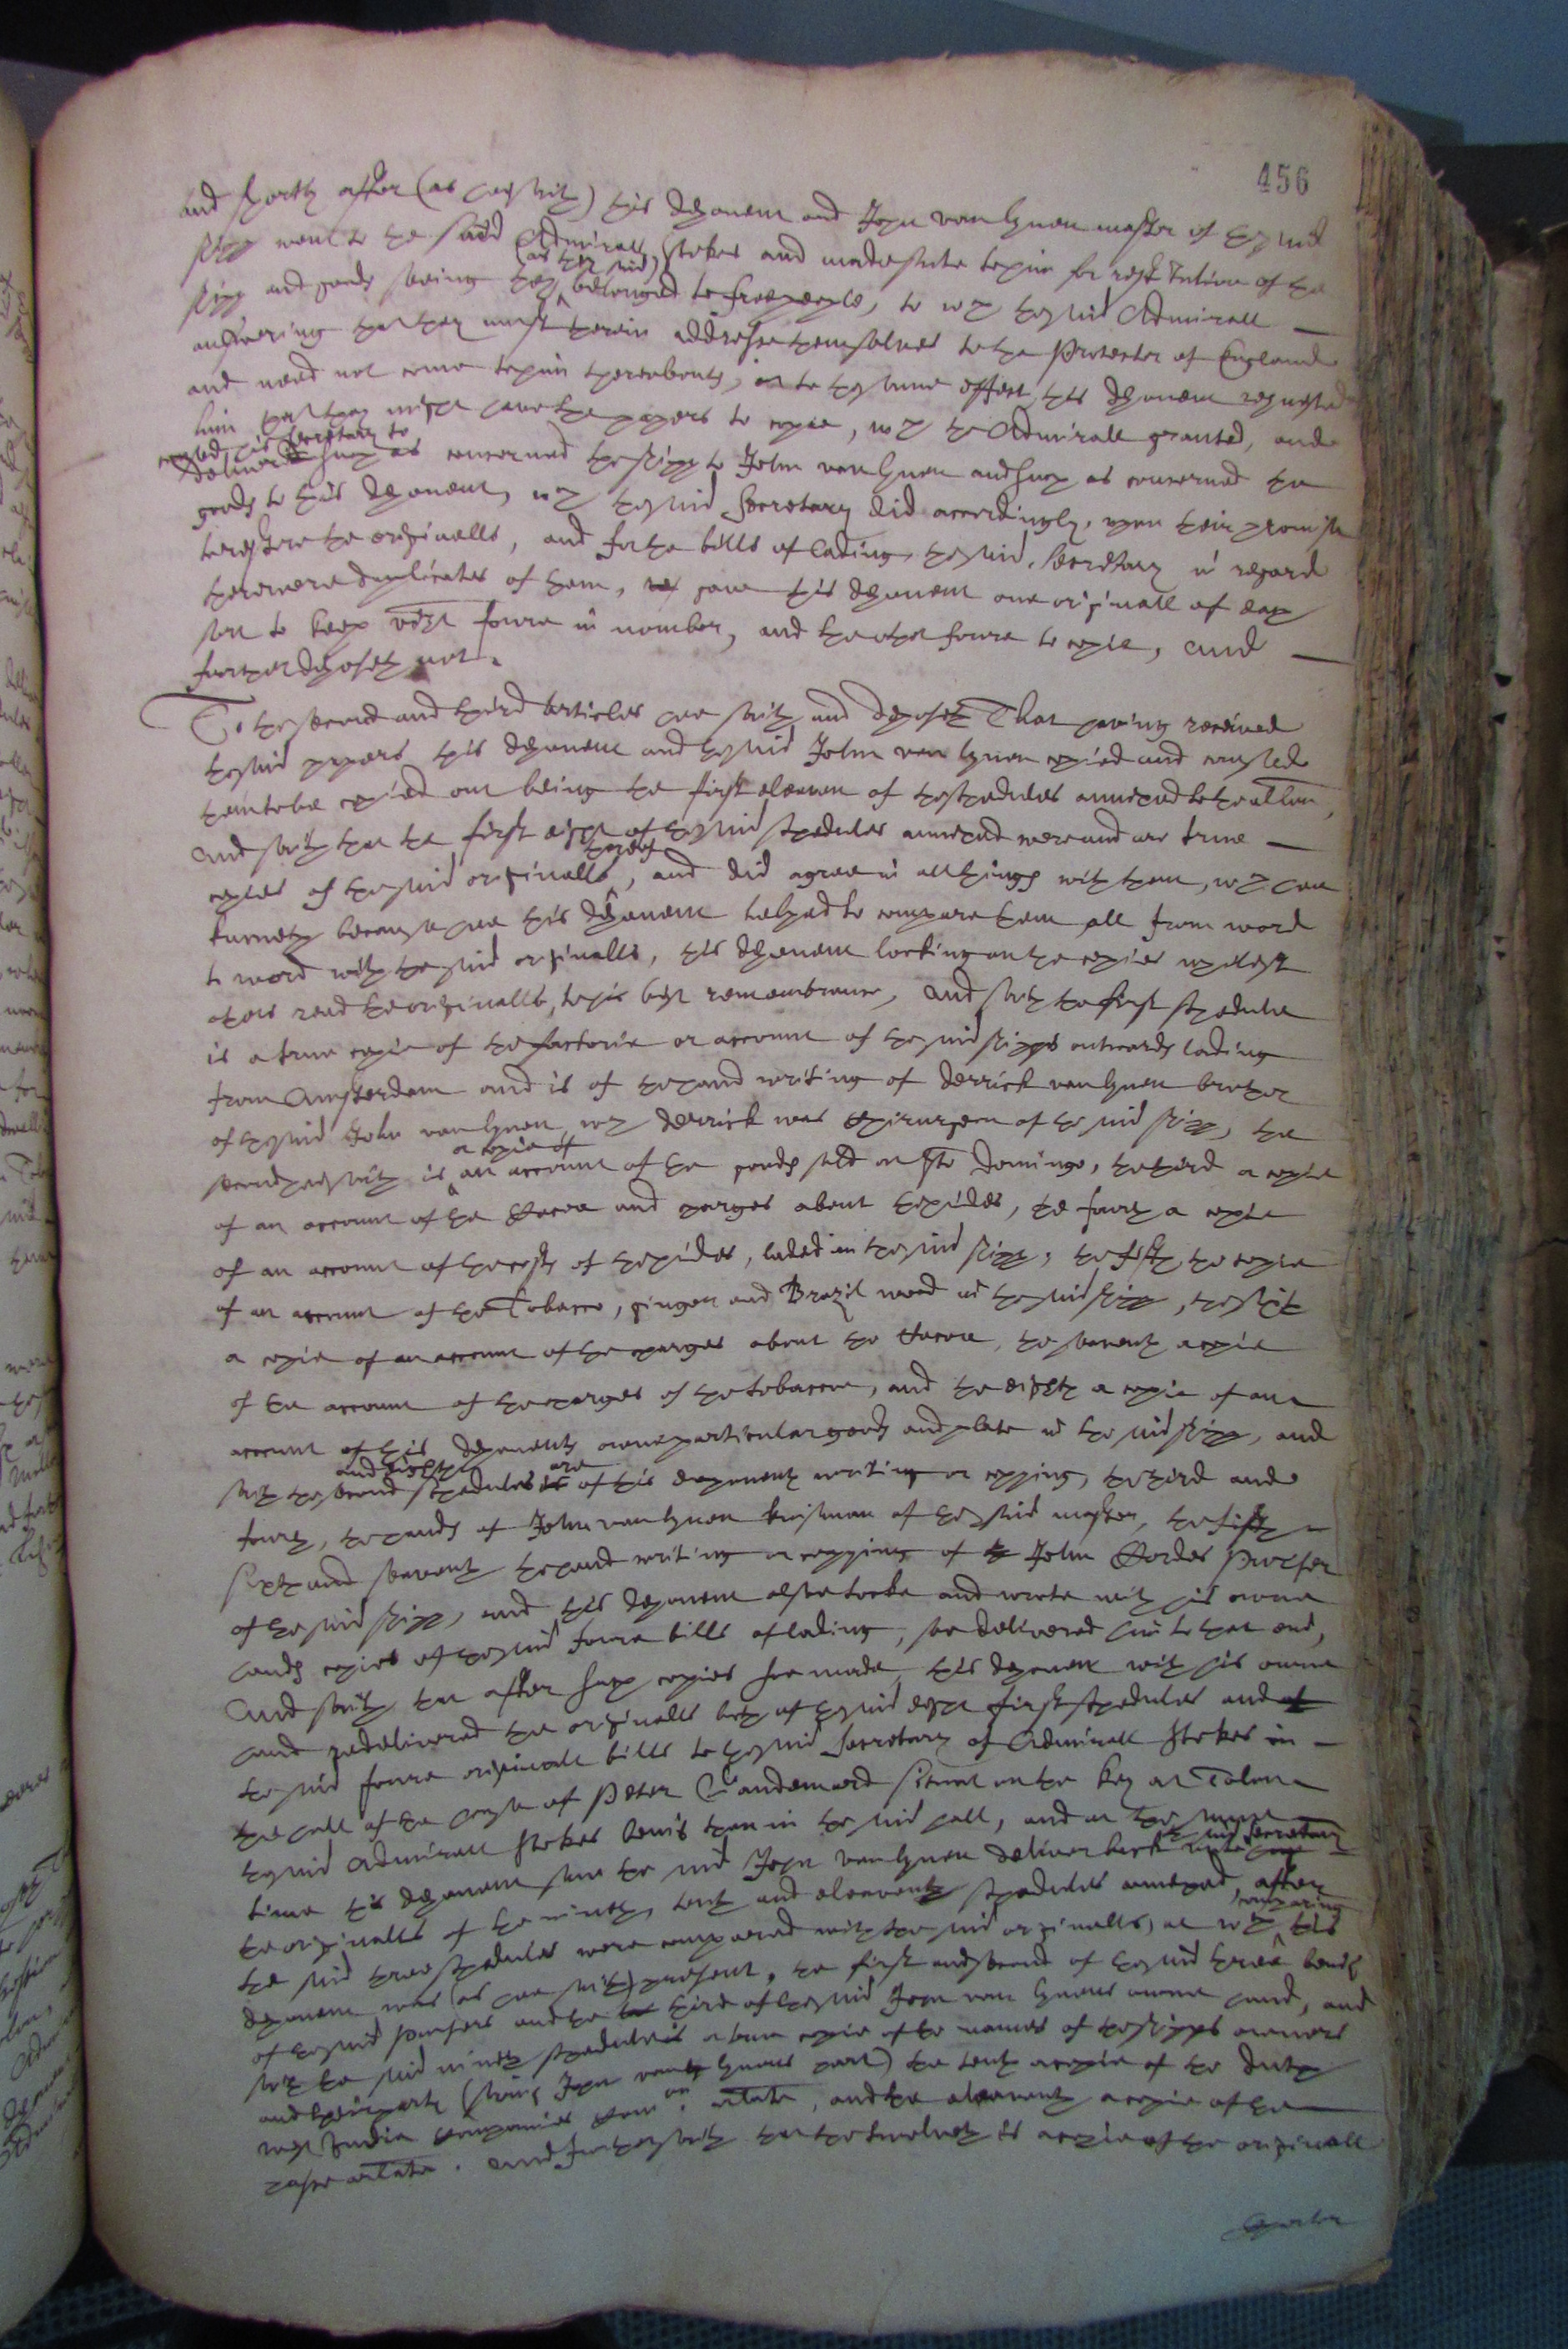 456
and shortly after (as hee saith) this deponent and John van Lynen master of the said
shipp went to the said Admirall Stokes and made suite to him for restitution of the
shipp and goods seeing they (as they said) belonged to free people, to wch the said Admirall
answering that they must therein addresse themselves to the Protector of England
and need not come to him thereabouts, or to the same effect, this deponent requested
him that they might have the papers to copie, wch the Admirall granted, and
caused his secretary to deliver such as concerned the shipp to John van Lynen and such as concerned the
goods to this deponent, wch the said Secretary did accordingly, upon their promise
to restore the originalls, and for the bills of lading, the said Secretary in regard
there were duplicates of them, gave this deponent one originall of each
sort to keep vizt foure in number, and the other foure to copie, and
further deposeth not.
To the second and third articles hee saith and deposeth That having received
the said papers this deponent and the said John van Lynen copied and caused
them to be copied out being the first eleaven of the schedules annexed to the allon,
And saith that the first eight of the said schedules annexed were and are true
copies of the said originalls thereof, and did agree in all things with them, wch hee
knoweth because hee this deponent helped to compare them all from word
to word with the said originalls, this deponent looking on the copies whilest
others read the originalls, to his best remembrance, And saith the first schedule
is a true copie of the factorie or account of the said shipps outwards lading
from Amsterdam and is of the hand writing of Derrick van Lynen brother
of the said John van Lynen, wch Derrick was Chirurgeon of the said shipp, the
second hee saith is a copie of an account of the goods sold at Sto Domingo, the third a copie
of an account of the Cacoa and charges about the hides, the fourth a copie
of an account of the costs of the hides, laded in the said shipp, the fifth the copie
of an account of the Tobacco, ginger and Brazil wood in the said shipp, the sixth
a copie of an account of the charges about the Cacoa, the seaventh a copie
of the account of the charges of the tobaccoe, and the eighth a copie of an
account of this deponents owne particular goods and plate in the said shipp, and
saith the second and eighth schedules are of this deponents writing or copying, the third and
fourth, the hands of John van Lynen kinsman of the said master, the fifth
sixth and seaventh the hand writing or copying of John Cordes Purser
of the said shipp, and this deponent alsoe tooke and wrote with his owne
hands copies of the said foure bills of lading, soe delivered him to that end,
And saith that after such copies soe made, this deponent with his owne
hand redelivered the originalls both of the said eight first schedules and
the said foure originall bills to the said Secretary of Admirall Stokes in
the hall of the house of Peter Vandeward situat on the key at Tolone
the said Admirall Stokes being then in the said hall, and at the same
time this deponent saw the said John van Lynen deliver back to the said Secretary
the originalls of the nineth, tenth and eleaventh schedules annexed, after
the said three schedules were compared with the said originalls, at wch comparing this
deponent was (as hee saith) present, the first and second of the said three beings
of the said Pursers and the third of the said John van Lynens owne hand, and
saith the said nineth schedule is a true copie of the names of the shipps owners
and their parts (saving John van Lynens part) the tenth a copie of the Dutch
West India companies arlate, and the eleaventh a copie of the
passe arlate. And further saith that the twelveth is a copie of the originall